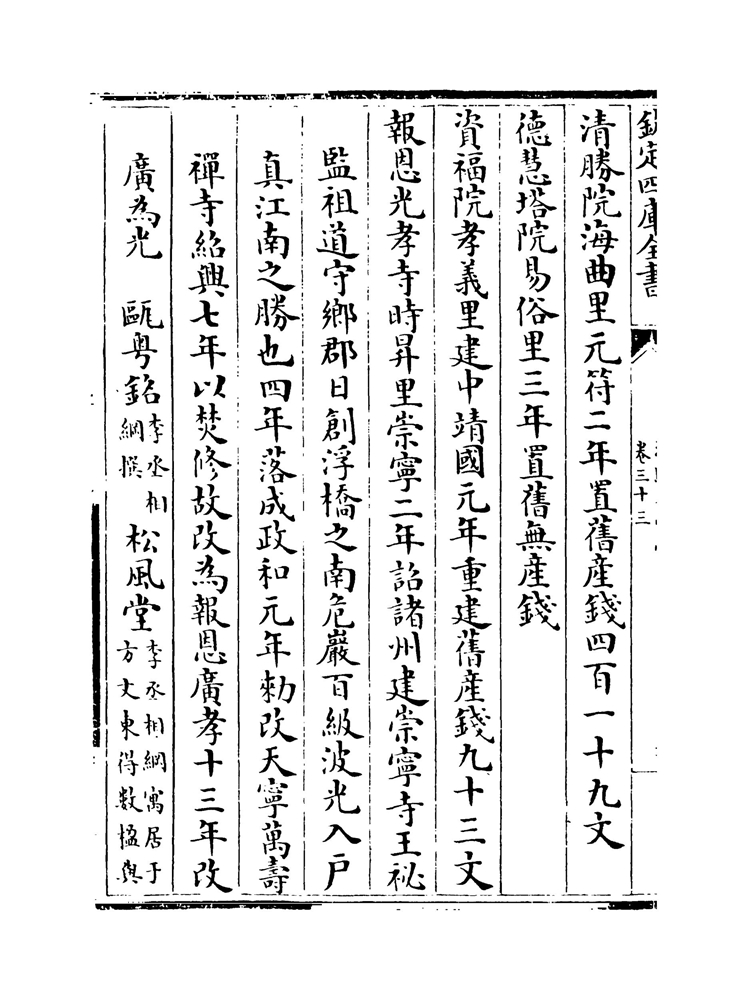 欽定四庫全書
卷三十三
清勝院海曲里元符二年置舊產錢四百一十九文
德慧塔院易俗里三年置舊無產錢
資福院孝義里建中靖國元年重建舊產錢九十三文
報恩光孝寺時昇里崇寧二年詔諸州建崇寧寺王祕
監祖道守鄉郡日創浮橋之南危巖百級波光入戶
真江南之勝也四年落成政和元年勑改天寧萬壽
禪寺紹興七年以焚修故改為報恩廣孝十三年改
廣為光　甌粤銘李丞相綱撰　松風堂李丞相綱寓居于方丈東得數楹與